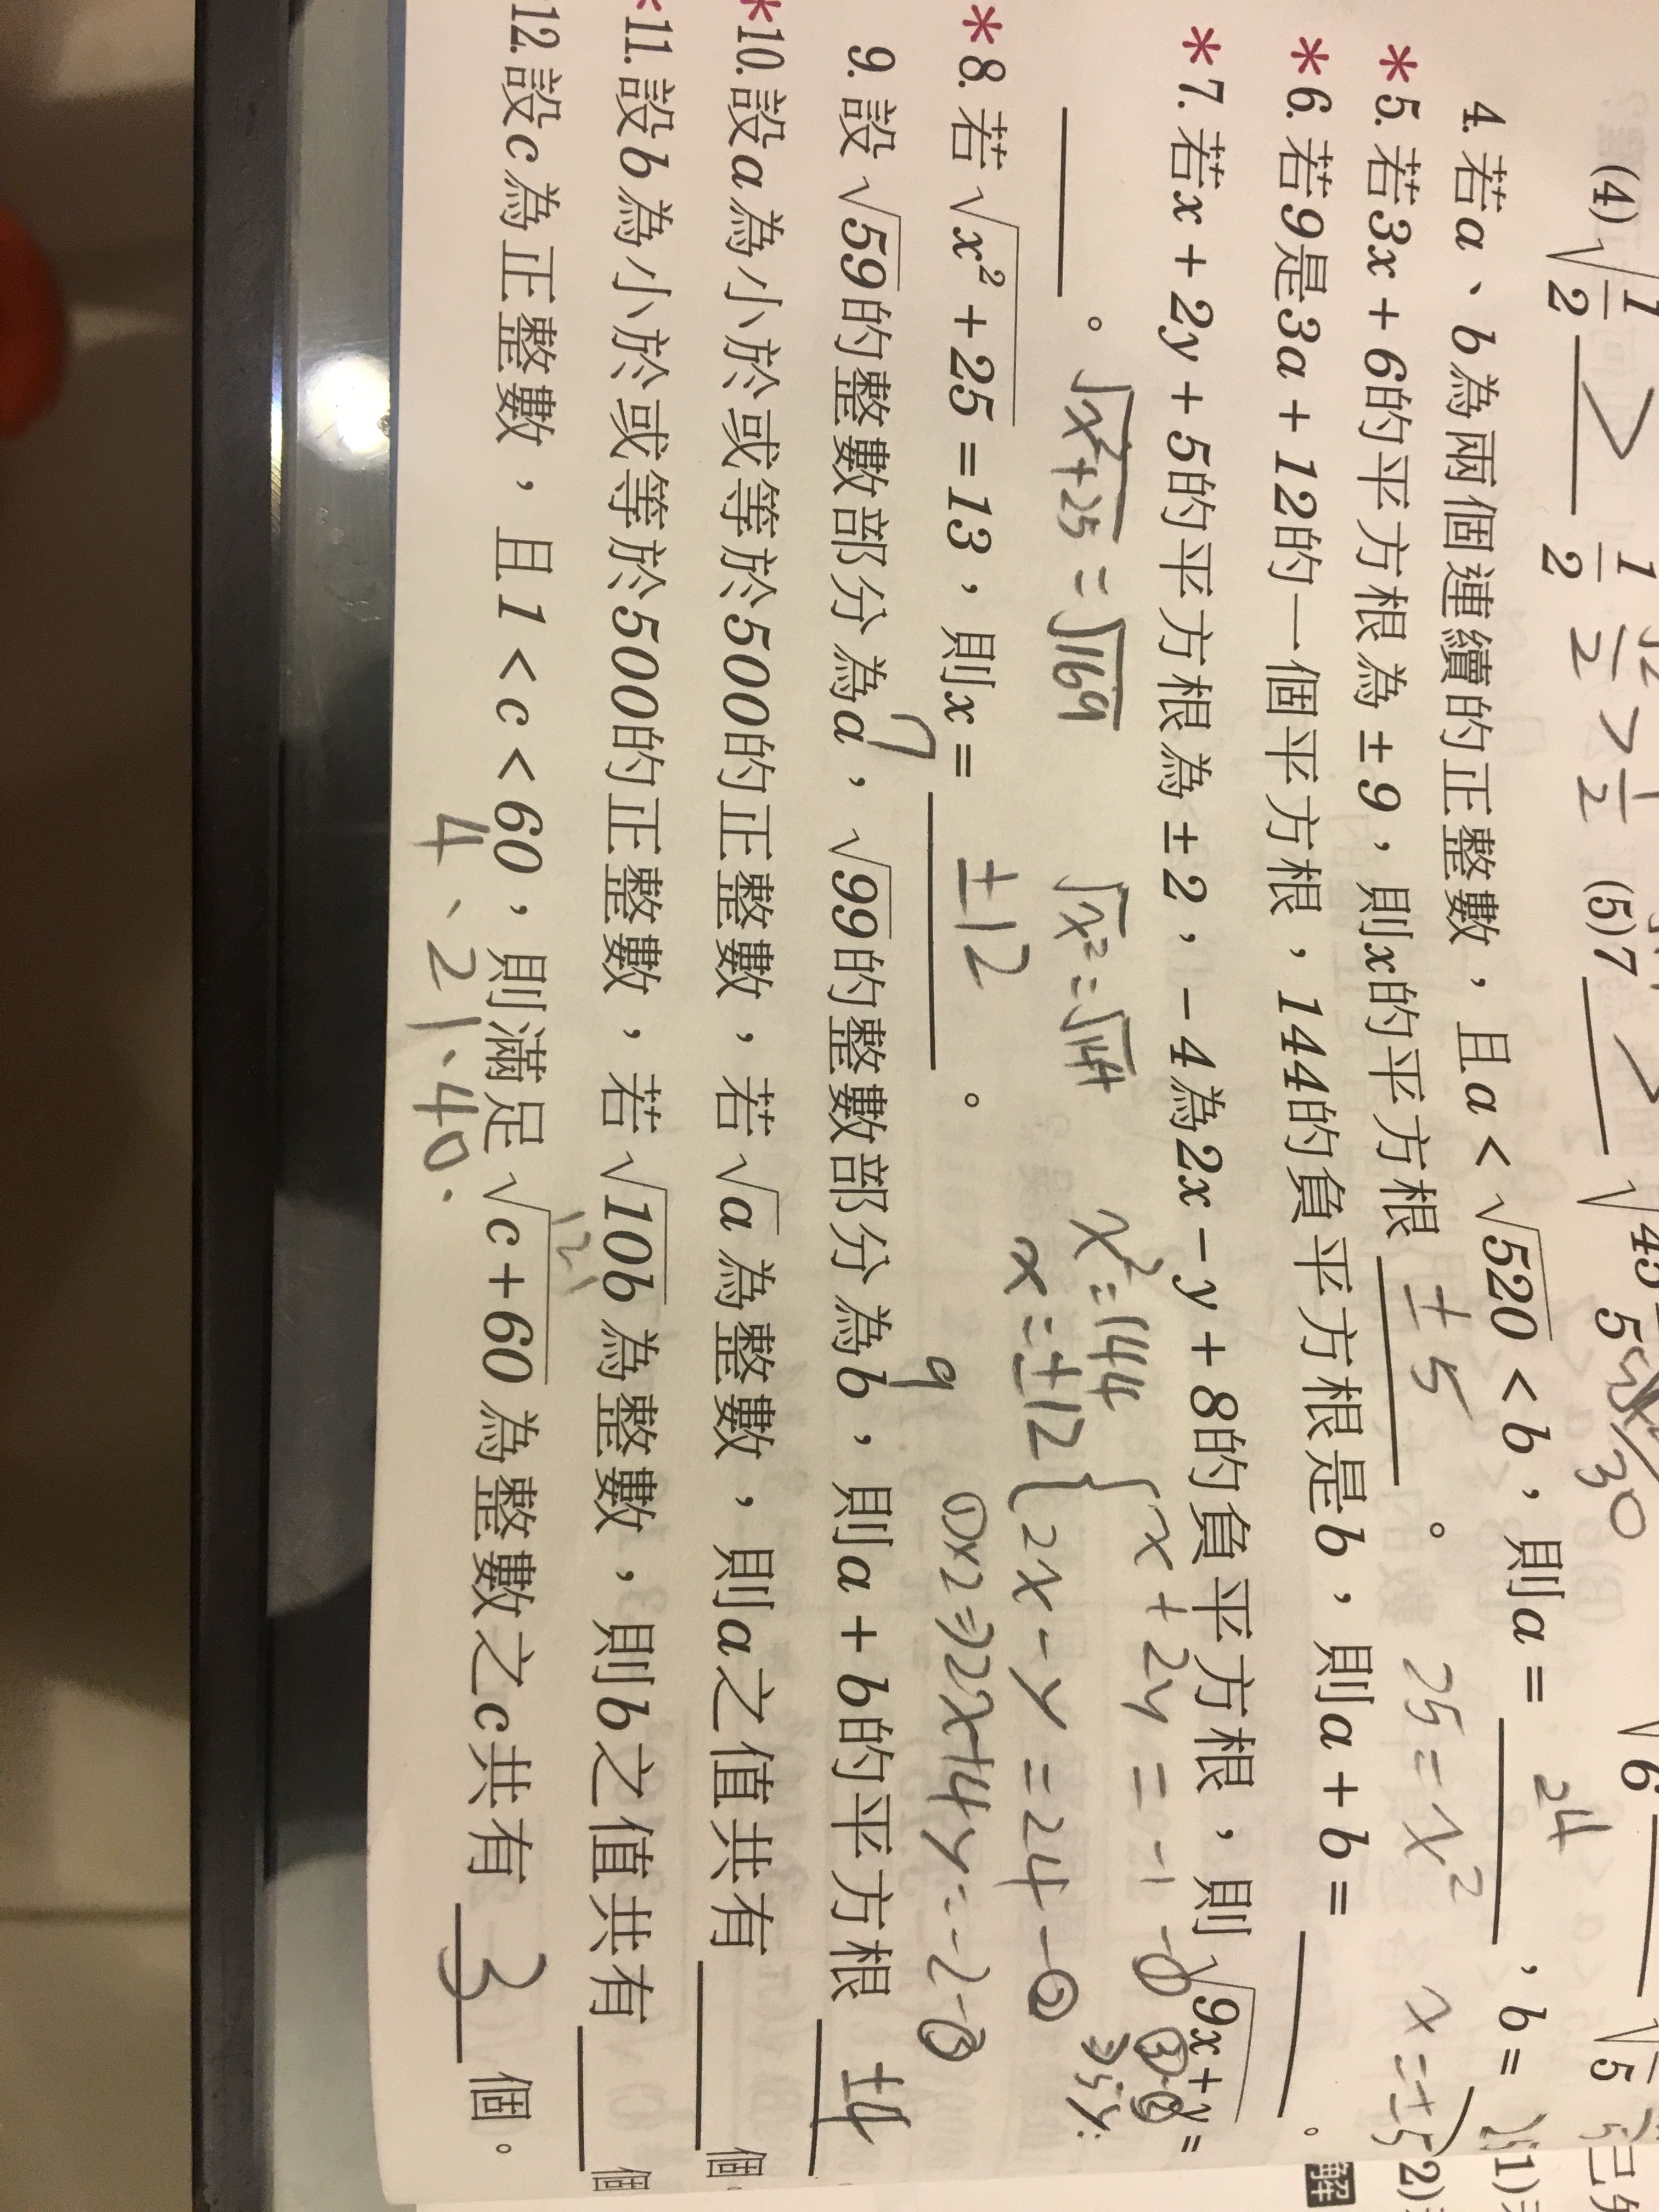 (4)√1/2 > 1/2 1/2 > 1/2 (5)7 > √45
4. 若a、b為兩個連續的正整數，且a < √520 < b，則a = 24，b =
*5. 若3x + 6的平方根為 ± 9，則x的平方根 ±5。 25 = x² x = ±5
*6. 若9是3a + 12的一個平方根，144的負平方根是b，則a + b = 。
*7. 若x + 2y + 5的平方根為 ± 2，- 4為2x - y + 8的負平方根，則√9x + y =
。
√x²+25 = √169 √x² = √144 x² = 144 x = ±12
{x + 2y = -1 -①
2x - y = 24 -②
①×2⇒2x+4y=-2-③
*8. 若√x² + 25 = 13，則x = ±12。
9. 設√59的整數部分為a，√99的整數部分為b，則a + b的平方根 ±4
7 9
*10. 設a為小於或等於500的正整數，若√a為整數，則a之值共有 個
*11. 設b為小於或等於500的正整數，若√10b為整數，則b之值共有 個
121
12. 設c為正整數，且1 < c < 60，則滿足√c + 60為整數之c共有 3 個。
4、21、40.